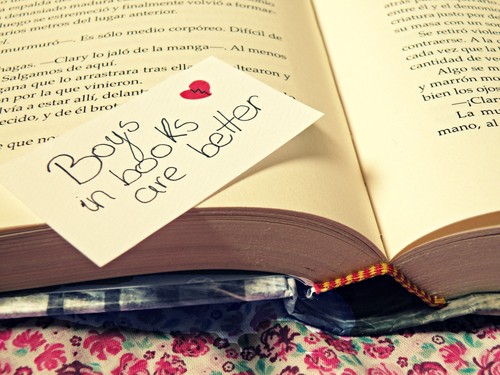 armos se estremeció y finalmente volvió a formar-
metros del lugar anterior.
murmuró—. Es sólo medio corpóreo. Difícil de
hagas. —Clary lo jaló de la manga—. Al menos
Salgamos de aquí.
gana que lo arrastrara tras ella
altearon y
ón por la que vinieron.
lvía a estar allí, delan
ecido, y de él brot
que no
Boys
in books
are better
entre él y el demon
criatura justo por d
su masa con un
Se retiró
contrarse. A la
cada vez que la
cantidad de ve
Algo se m
bien los ojos
—¡Clar
La mu
mano, al